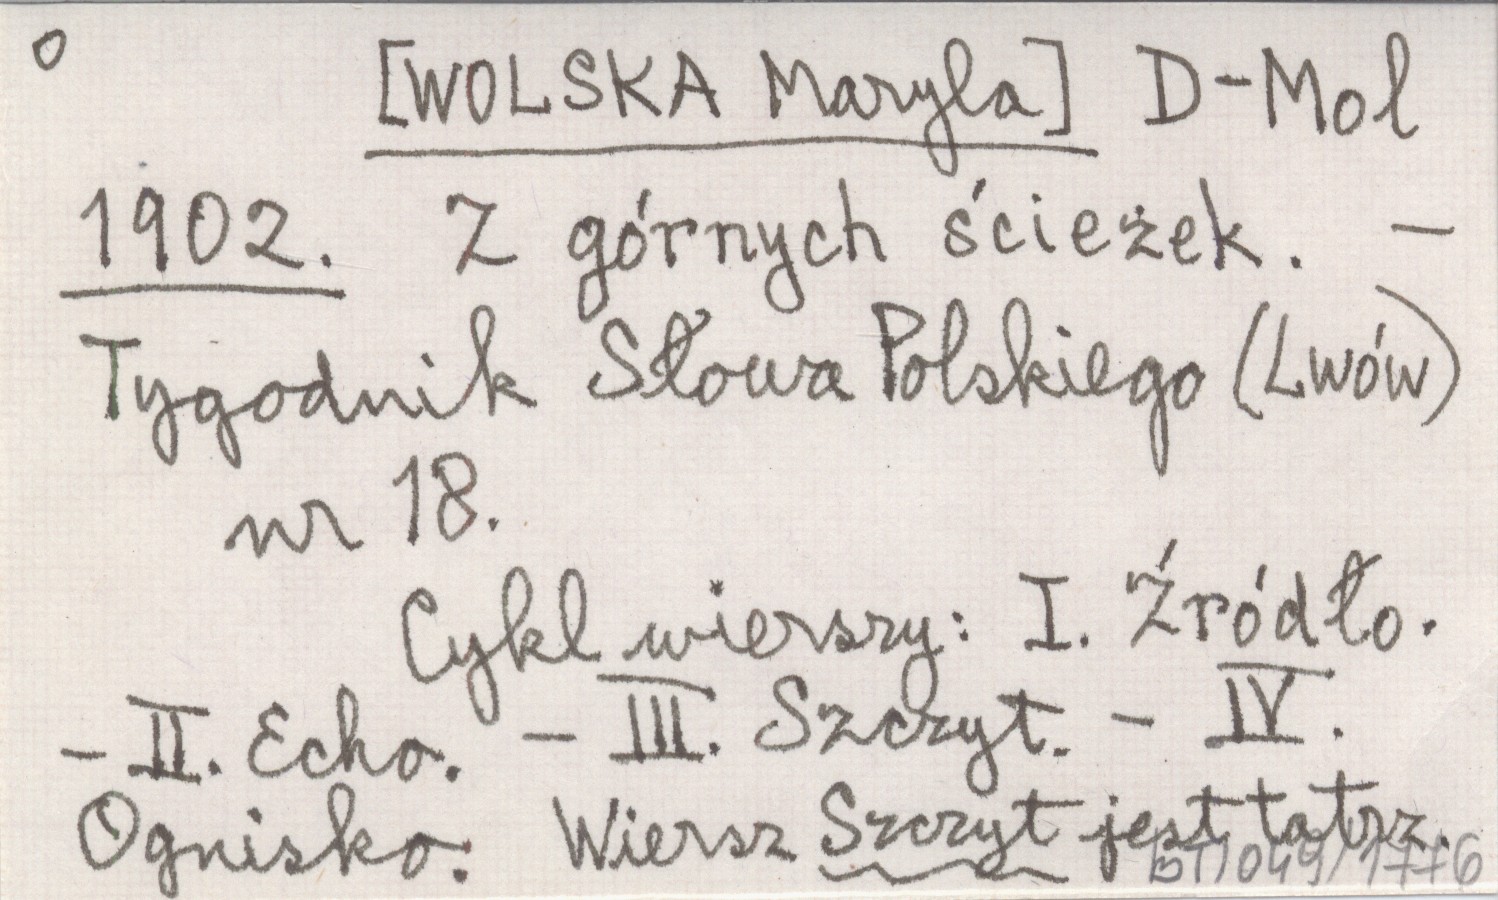 [WOLSKA Maryla] D-Mol
1902. Z górnych ścieżek. —
Tygodnik Słowa Polskiego (Lwów)
nr 18.
Cykl wierszy: I. Źródło.
- II. Echo. - III. Szczyt. - IV.
Ognisko. Wiersz Szczyt jest tatrz.
BT/049/1776